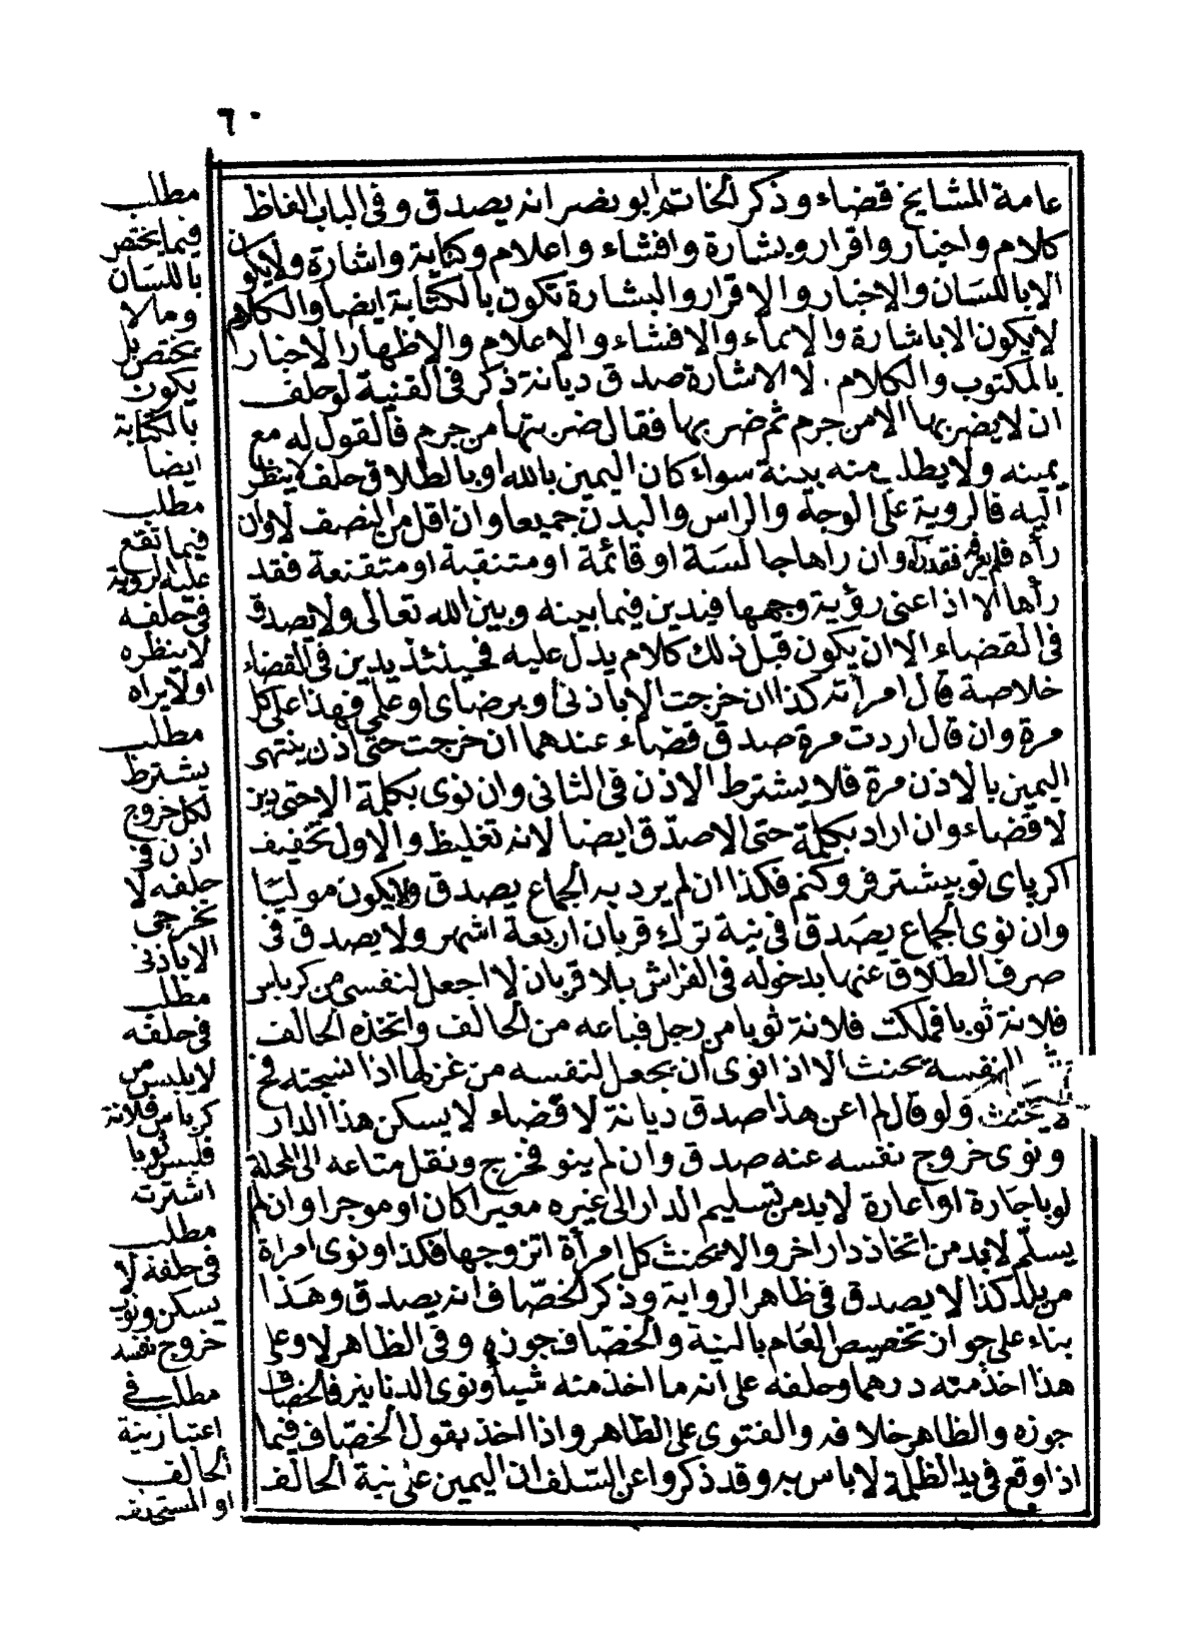 ٦٠
عامة المشايخ قضاء وذكر الخاتم ابو نصر انه يصدق وفى الباب الفاظ
كلام واخبار واقرار وبشارة وافشاء واعلام وكتابة واشارة ولا يكون
الا باللسان والاخبار والاقرار والبشارة تكون بالكتابة ايضا والكلام
لا يكون الا باشارة والايماء والافشاء والاعلام والاظهار الاخبار
بالمكتوب والكلام . لا الاشارة صدق ديانة ذكر فى القنية لو حلف
ان لا يضربها الا من جرم ثم ضربها فقال ضربتها من جرم فالقول له مع
يمينه ولا يطلب منه بينة سواء كان اليمين بالله او بالطلاق حلف لا ينظر
اليه فالروية على الوجه والراس والبدن جميعا وان اقل من النصف لا وان
رأه فلم يعرفه فقد رآه وان راها جالسة او قائمة او متنقبة او متقنعة فقد
رأها الا اذا عنى رؤية وجهها فيدين فيما بينه وبين الله تعالى ولا يصدق
فى القضاء الا ان يكون قبل ذلك كلام يدل عليه فحينئذ يدين فى القضاء
خلاصة قال امرأته كذا ان خرجت الا باذنى او برضاى او علمى فهذا على كل
مرة وان قال اردت مرة صدق قضاء عندهما ان خرجت حتى اذن ينتهى
اليمين بالاذن مرة فلا يشترط الاذن فى الثانى وان نوى بكلمة الا حتى دين
لا قضاء وان اراد بكلمة حتى الا صدق ايضا لانه تغليظ والاول تخفيف
اكرباى تو بيشتر فروكنم فكذا ان لم يرد به الجماع يصدق ولا يكون موليا
وان نوى الجماع يصدق فى نية ترك قربان اربعة اشهر ولا يصدق فى
صرف الطلاق عنها بدخوله فى الفراش بلا قربان لا اجعل لنفسى من كرباس
فلانة ثوبا فملكت فلانة ثوبا من رجل فباعه من الحالف واتخذه الحالف
لنفسه يحنث الا اذا نوى ان يجعل لنفسه من غزلها اذا نسجته فح
لا يحنث ولو قال لم اعن هذا صدق ديانة لا قضاء لا يسكن هذا الدار
ونوى خروج نفسه عنه صدق وان لم ينو فخرج ونقل متاعه الى المحلة
لو باجارة او اعارة لا بد من تسليم الدار الى غيره معيرا كان او موجرا وان لم
يسلم لا بد من اتخاذ دار اخر والا يحنث كل امرأة اتزوجها فكذا ونوى امراة
من بلد كذا لا يصدق فى ظاهر الرواية وذكر الخصاف انه يصدق وهذا
بناء على جواز تخصيص العام بالنية والخصاف جوزه وفى الظاهر لا وعلى
هذا اخذ منه درهما وحلفه على انه ما اخذ منه شيأ ونوى الدنانير فالخصاف
جوزه والظاهر خلافه والفتوى على الظاهر واذا اخذ بقول الخصاف فيما
اذا وقع فى يد الظلمة لا باس به وقد ذكروا عن السلف ان اليمين على نية الحالف
مطلب
فيما يختص
باللسان
وما لا
يختص بل
يكون
بالكتابة
ايضا
مطلب
فيما تقع
عليه الروية
فى حلفه
لا ينظره
او لا يراه
مطلب
يشترط
لكل خروج
اذن فى
حلفه لا
تخرجى
الا باذنى
مطلب
فى حلفه
لا يلبس من
كرباس فلانة
فلبس ثوبا
اشترت
مطلب
فى حلفه لا
يسكن ونوى
خروج نفسه
مطلب فى
اعتبار نية
الحالف
او المستحلف